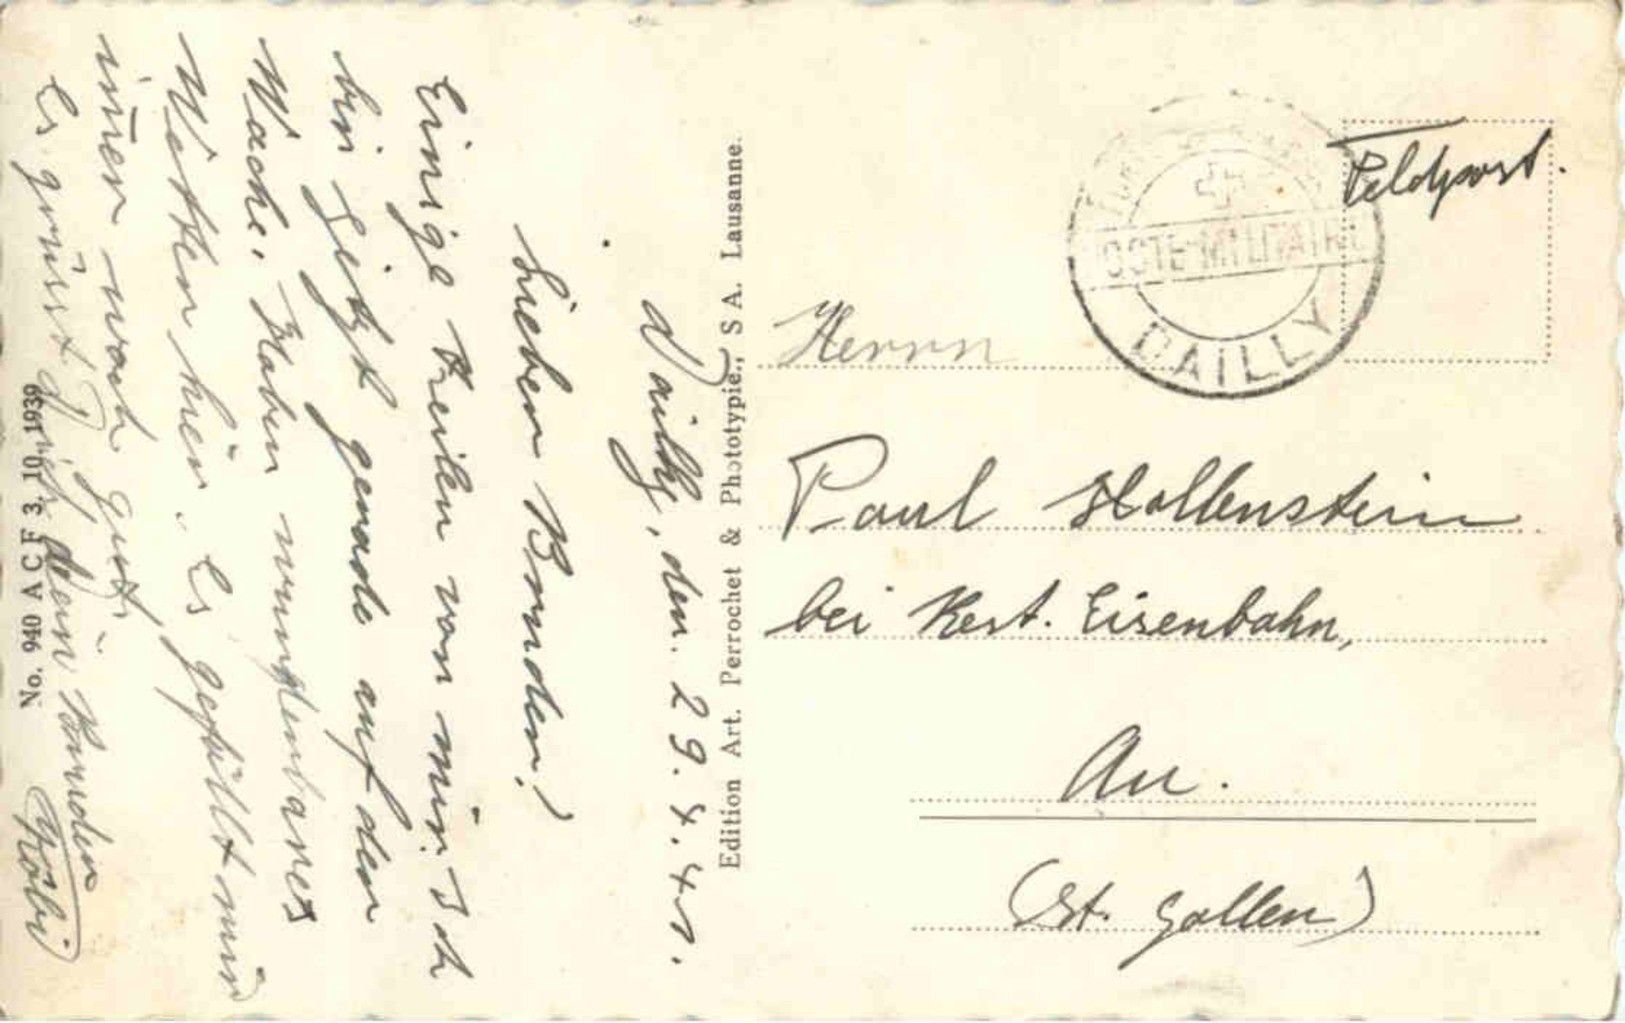 Dailly, den. 29.4.41.
Lieber Bruder!
Einige Zeilen von mir. Ich
bin jetzt gerade auf der
Wache. Haben wunderbares
Wetter hier. Es gefällt mir
immer noch gut.
Es grüsst Dich Dein Bruder
Köbi
No. 940 A C F 3. 10. 1939
Edition Art. Perrochet & Phototypie., S A. Lausanne.
Feldpost.
POSTE MILITAIRE
DAILLY
Herrn
Paul Hollenstein
bei Rest. Eisenbahn,
Au.
(St. Gallen)